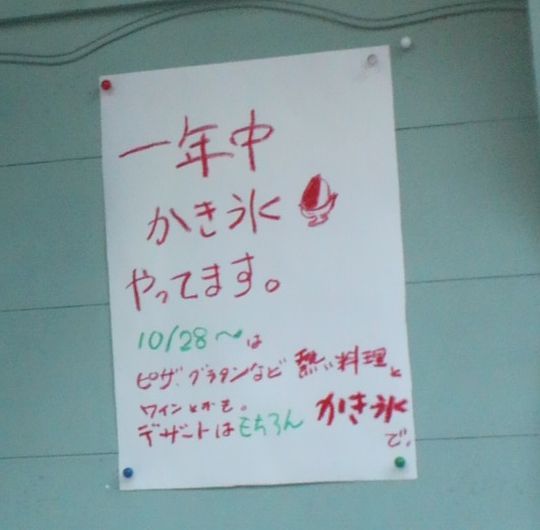 一年中
かき氷
やってます。
10/28〜は
ピザ、グラタンなど 熱い料理と
ワインとかも。
デザートはもちろん かき氷で。